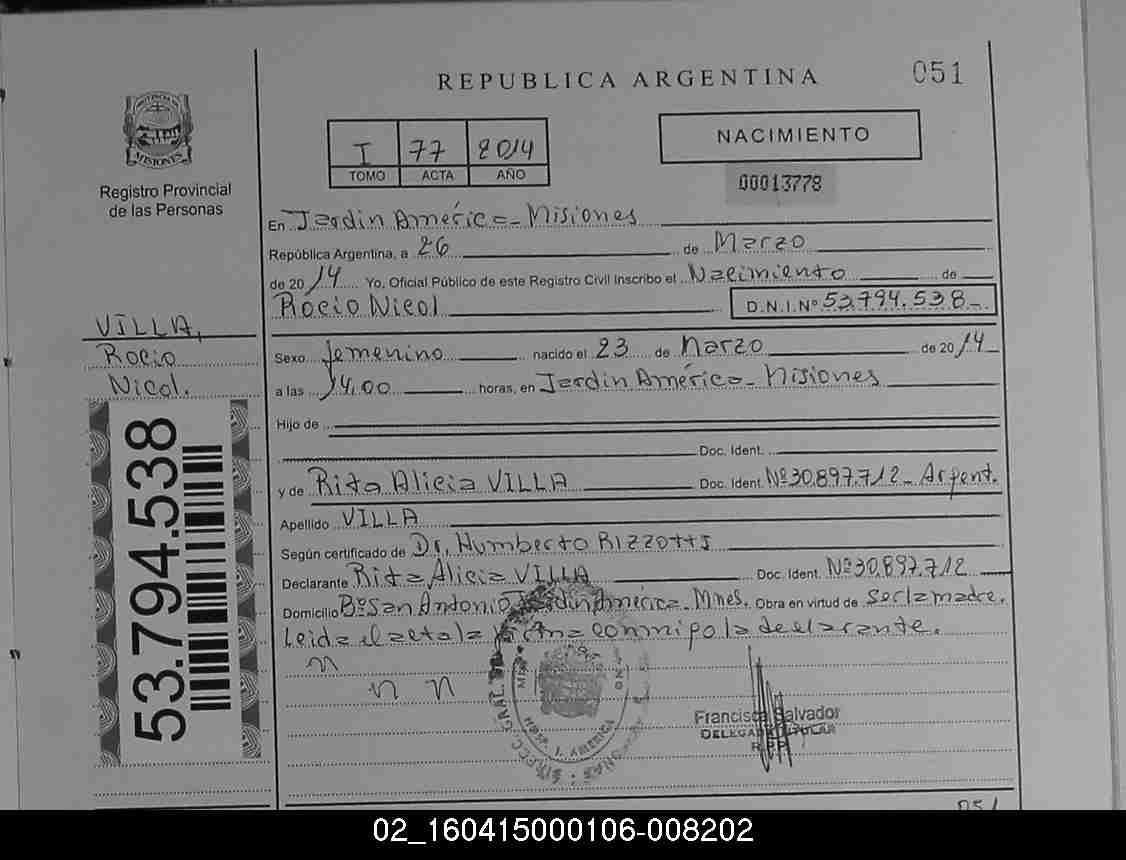 REPUBLICA ARGENTINA
051
PROVINCIA DE
MISIONES
Registro Provincial
de las Personas
I 77 2014
TOMO ACTA AÑO
NACIMIENTO
00013778
En Jardin América - Misiones
República Argentina, a 26 de Marzo
de 2014 Yo, Oficial Público de este Registro Civil Inscribo el Nacimiento de
Rocio Nicol D.N.I.Nº 53.794.538-
VILLA,
Rocio
Nicol.
53.794.538
Sexo femenino nacido el 23 de Marzo de 2014
a las 14,00 horas, en Jardin América - Misiones
Hijo de
Doc. Ident.
y de Rita Alicia VILLA Doc. Ident. Nº 30.897.712 - Argent.
Apellido VILLA
Según certificado de Dr. Humberto RIZZOTTI
Declarante Rita Alicia VILLA Doc. Ident. Nº 30.897.712
Domicilio Bº San Antonio Jardin América - Mnes. Obra en virtud de ser la madre.
Leida el acta la firma conmigo la declarante.
Francisca Salvador
DELEGADA TITULAR
R.P.P.
051
02_160415000106-008202